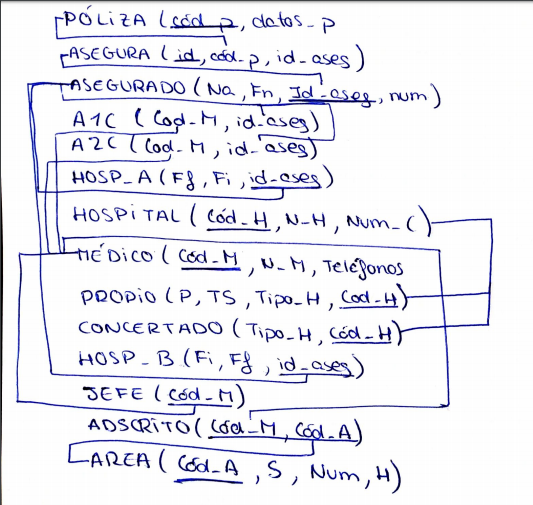 PÓLIZA (cód_p, datos_p
ASEGURA (id, cód_p, id_ases)
ASEGURADO (Na, Fn, Id_aseg, num)
A1C (Cod_M, id_aseg)
A2C (Cod_M, id_aseg)
HOSP_A (Ff, Fi, id_aseg)
HOSPITAL (Cód_H, N_H, Num_C)
MÉDICO (Cód_M, N_M, Teléfonos
PROPIO (P, TS, Tipo_H, Cod_H)
CONCERTADO (Tipo_H, Cód_H)
HOSP_B (Fi, Ff, id_ases)
JEFE (Cód_M)
ADSCRITO (Cód_M, Cód_A)
AREA (Cód_A, S, Num, H)